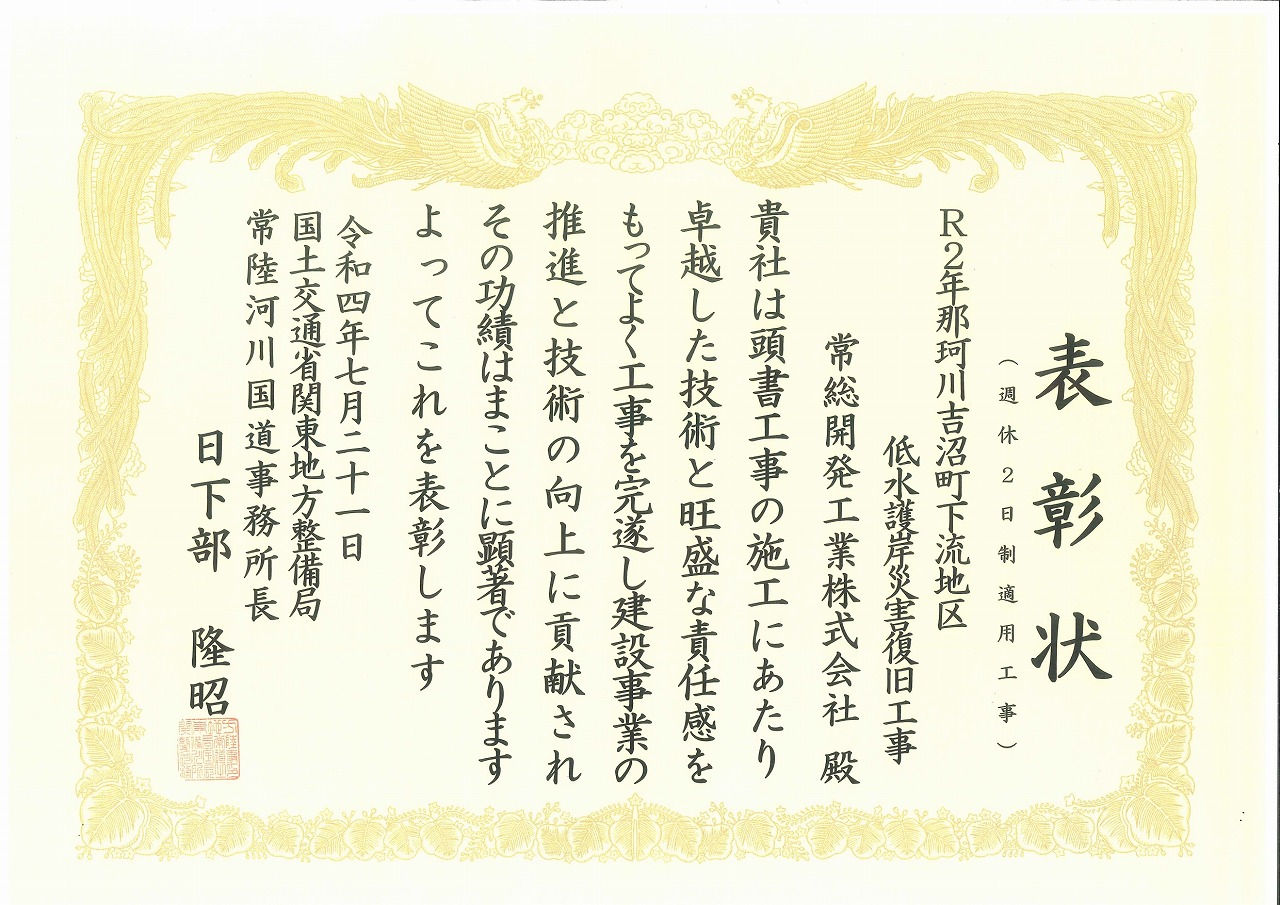 表彰状
（週休２日制適用工事）
Ｒ２年那珂川吉沼町下流地区
低水護岸災害復旧工事
常総開発工業株式会社 殿
貴社は頭書工事の施工にあたり
卓越した技術と旺盛な責任感を
もってよく工事を完遂し建設事業の
推進と技術の向上に貢献され
その功績はまことに顕著であります
よってこれを表彰します
令和四年七月二十一日
国土交通省関東地方整備局
常陸河川国道事務所長
日下部 隆昭